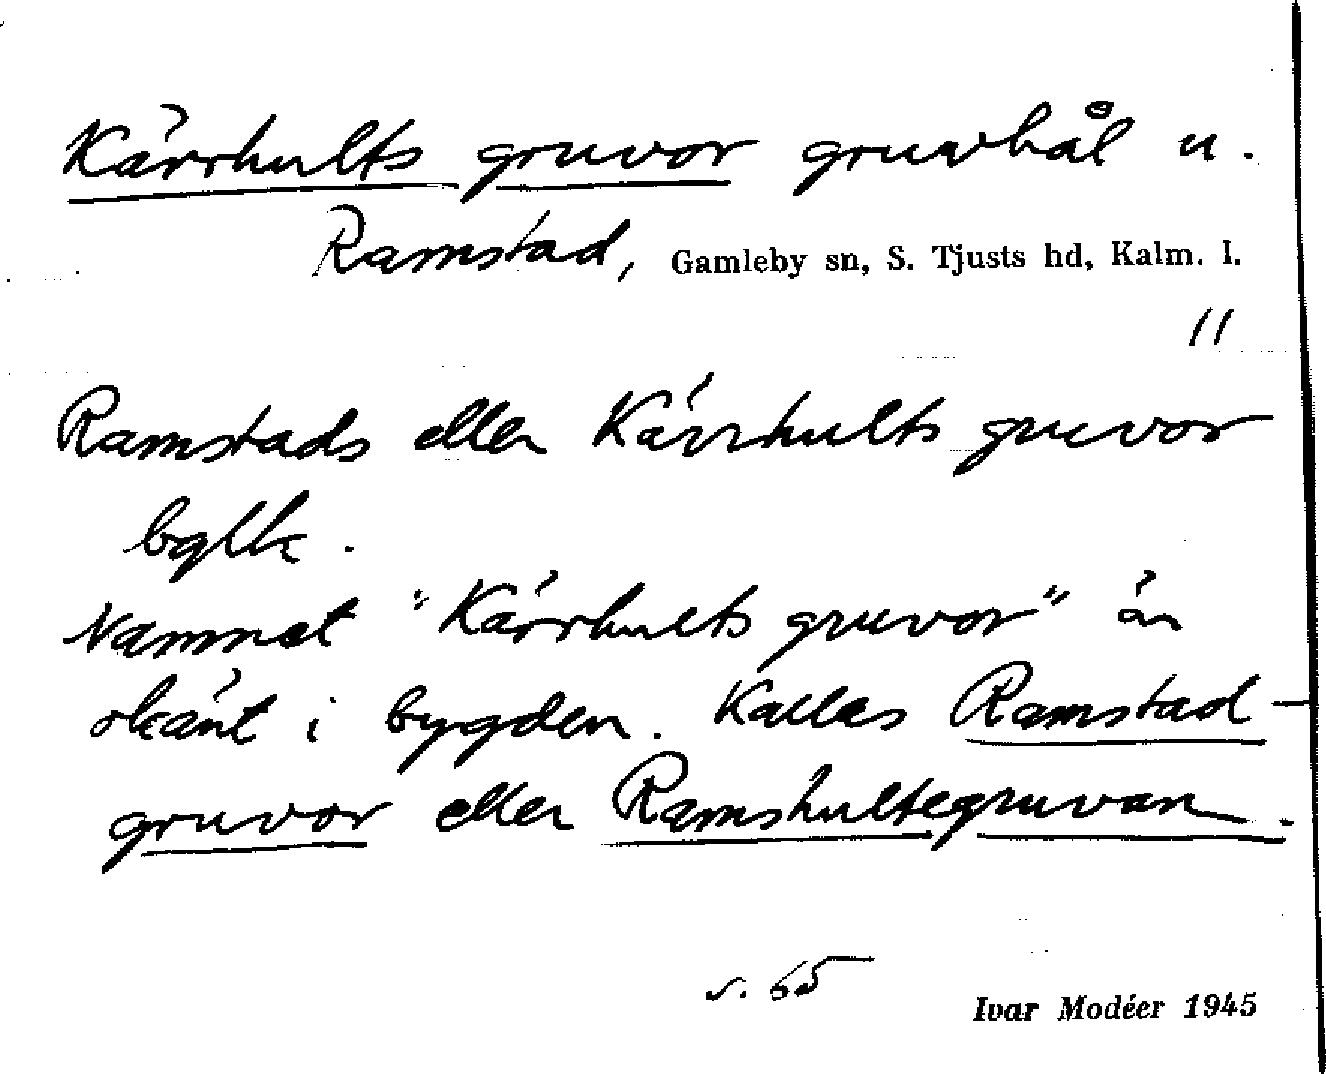 Kärrhults gruvor gruvhål u.
Ramstad, Gamleby sn, S. Tjusts hd, Kalm. l.
11
Ramstads eller Kärrhults gruvor
bglk.
Namnet "Kärrhults gruvor" är
okänt i bygden. Kallas Ramstad-
gruvor eller Ramshultegruvan.
s. 65
Ivar Modéer 1945